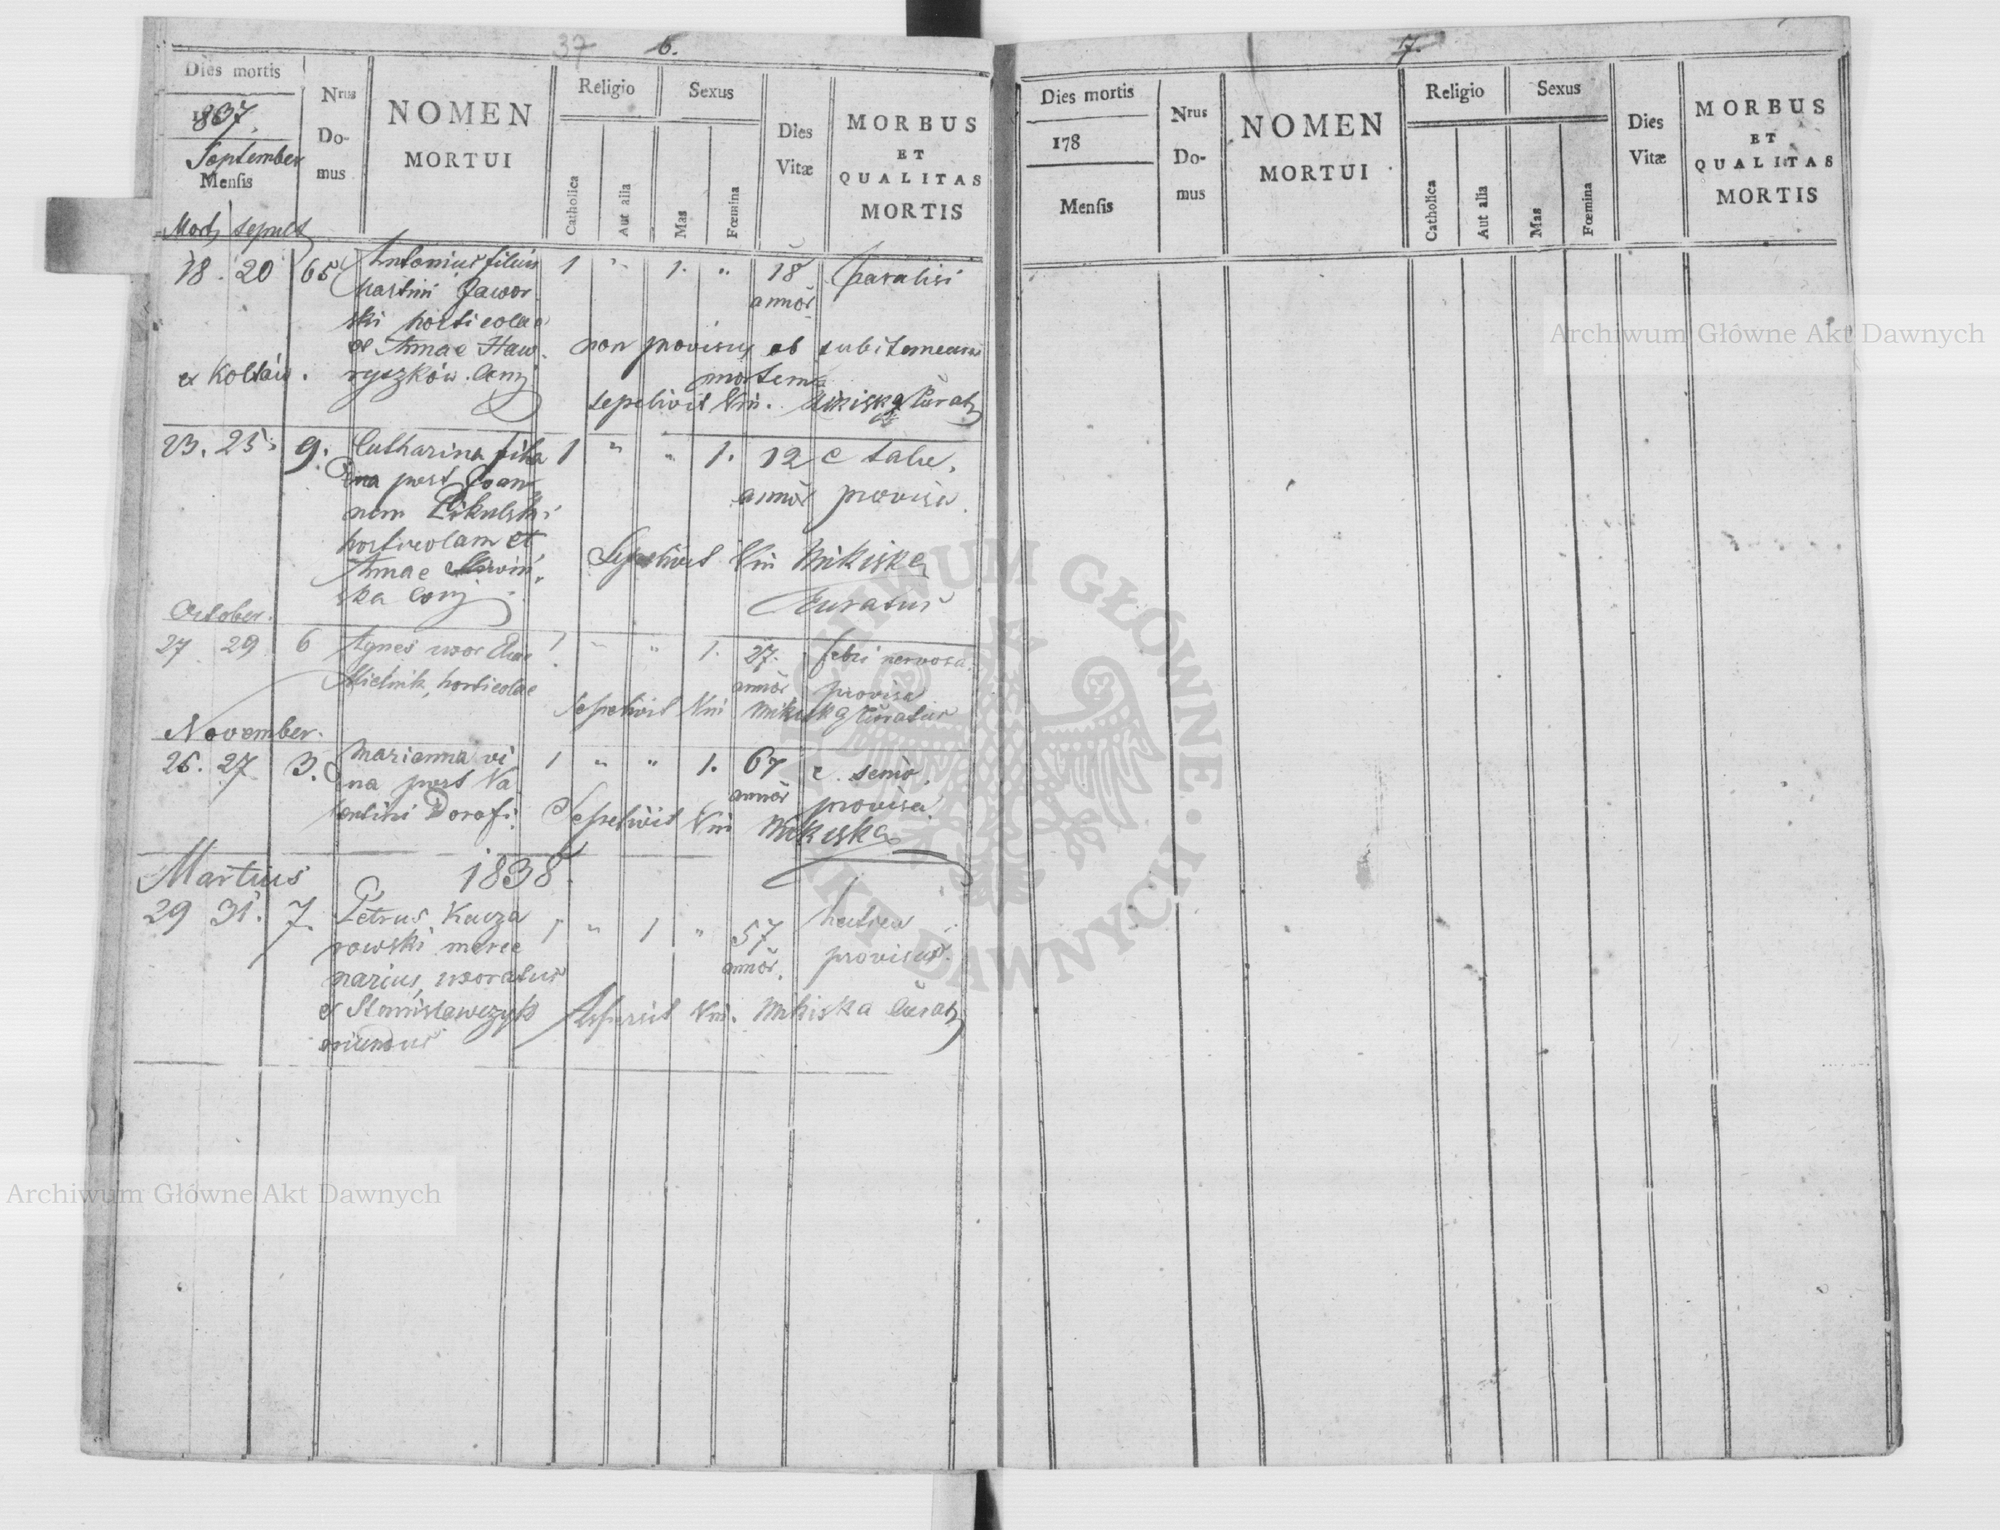 37 6.
Dies mortis
1837.
September
Mensis
Mort. sepult.
Nrus
Do-
mus
NOMEN
MORTUI
Religio
Catholica
Aut alia
Sexus
Mas
Fœmina
Dies
Vitæ
MORBUS
ET
QUALITAS
MORTIS
18. 20 65 Antonius filius 1 " 1. " 18 Paralisi
Martini Jawor annor
ski horticolae
et Annae Haw non provisus ob subitaneam
ex Koltów. ryszków. conj mortem
sepelivit Vin. Mikiska Curat
23. 25. 9. Catharina filia 1 " " 1. 12 e tabe.
post Joan annor provisa.
nem Pikulski
horticolam et
Annae
ska conj
Sepelivit Vin Mikiska
Curatus
October.
27 29 6 Agnes uxor 1 " " 1. 27. febri nervosa.
Mielnik, horticolae annor provisa
Sepelivit Vin Mikiska Curatus
November.
25. 27 3. Marianna vi 1 " " 1. 67 e senio.
na post Va annor provisa.
lentini Dorofi. Sepelivit Vin Mikiska
Martius 1838.
29 31. 7. Petrus Kacza 1 " 1 " 57 hectica
rowski merce annor. provisus.
narius, uxoratus
ex Stanislawczyk Asperuit Vin. Mikiska Curat
oriundus
7.
Dies mortis
178
Mensis
Nrus
Do-
mus
NOMEN
MORTUI
Religio
Catholica
Aut alia
Sexus
Mas
Fœmina
Dies
Vitæ
MORBUS
ET
QUALITAS
MORTIS
Archiwum Główne Akt Dawnych
Archiwum Główne Akt Dawnych
ARCHIWUM GŁÓWNE • AKT DAWNYCH •